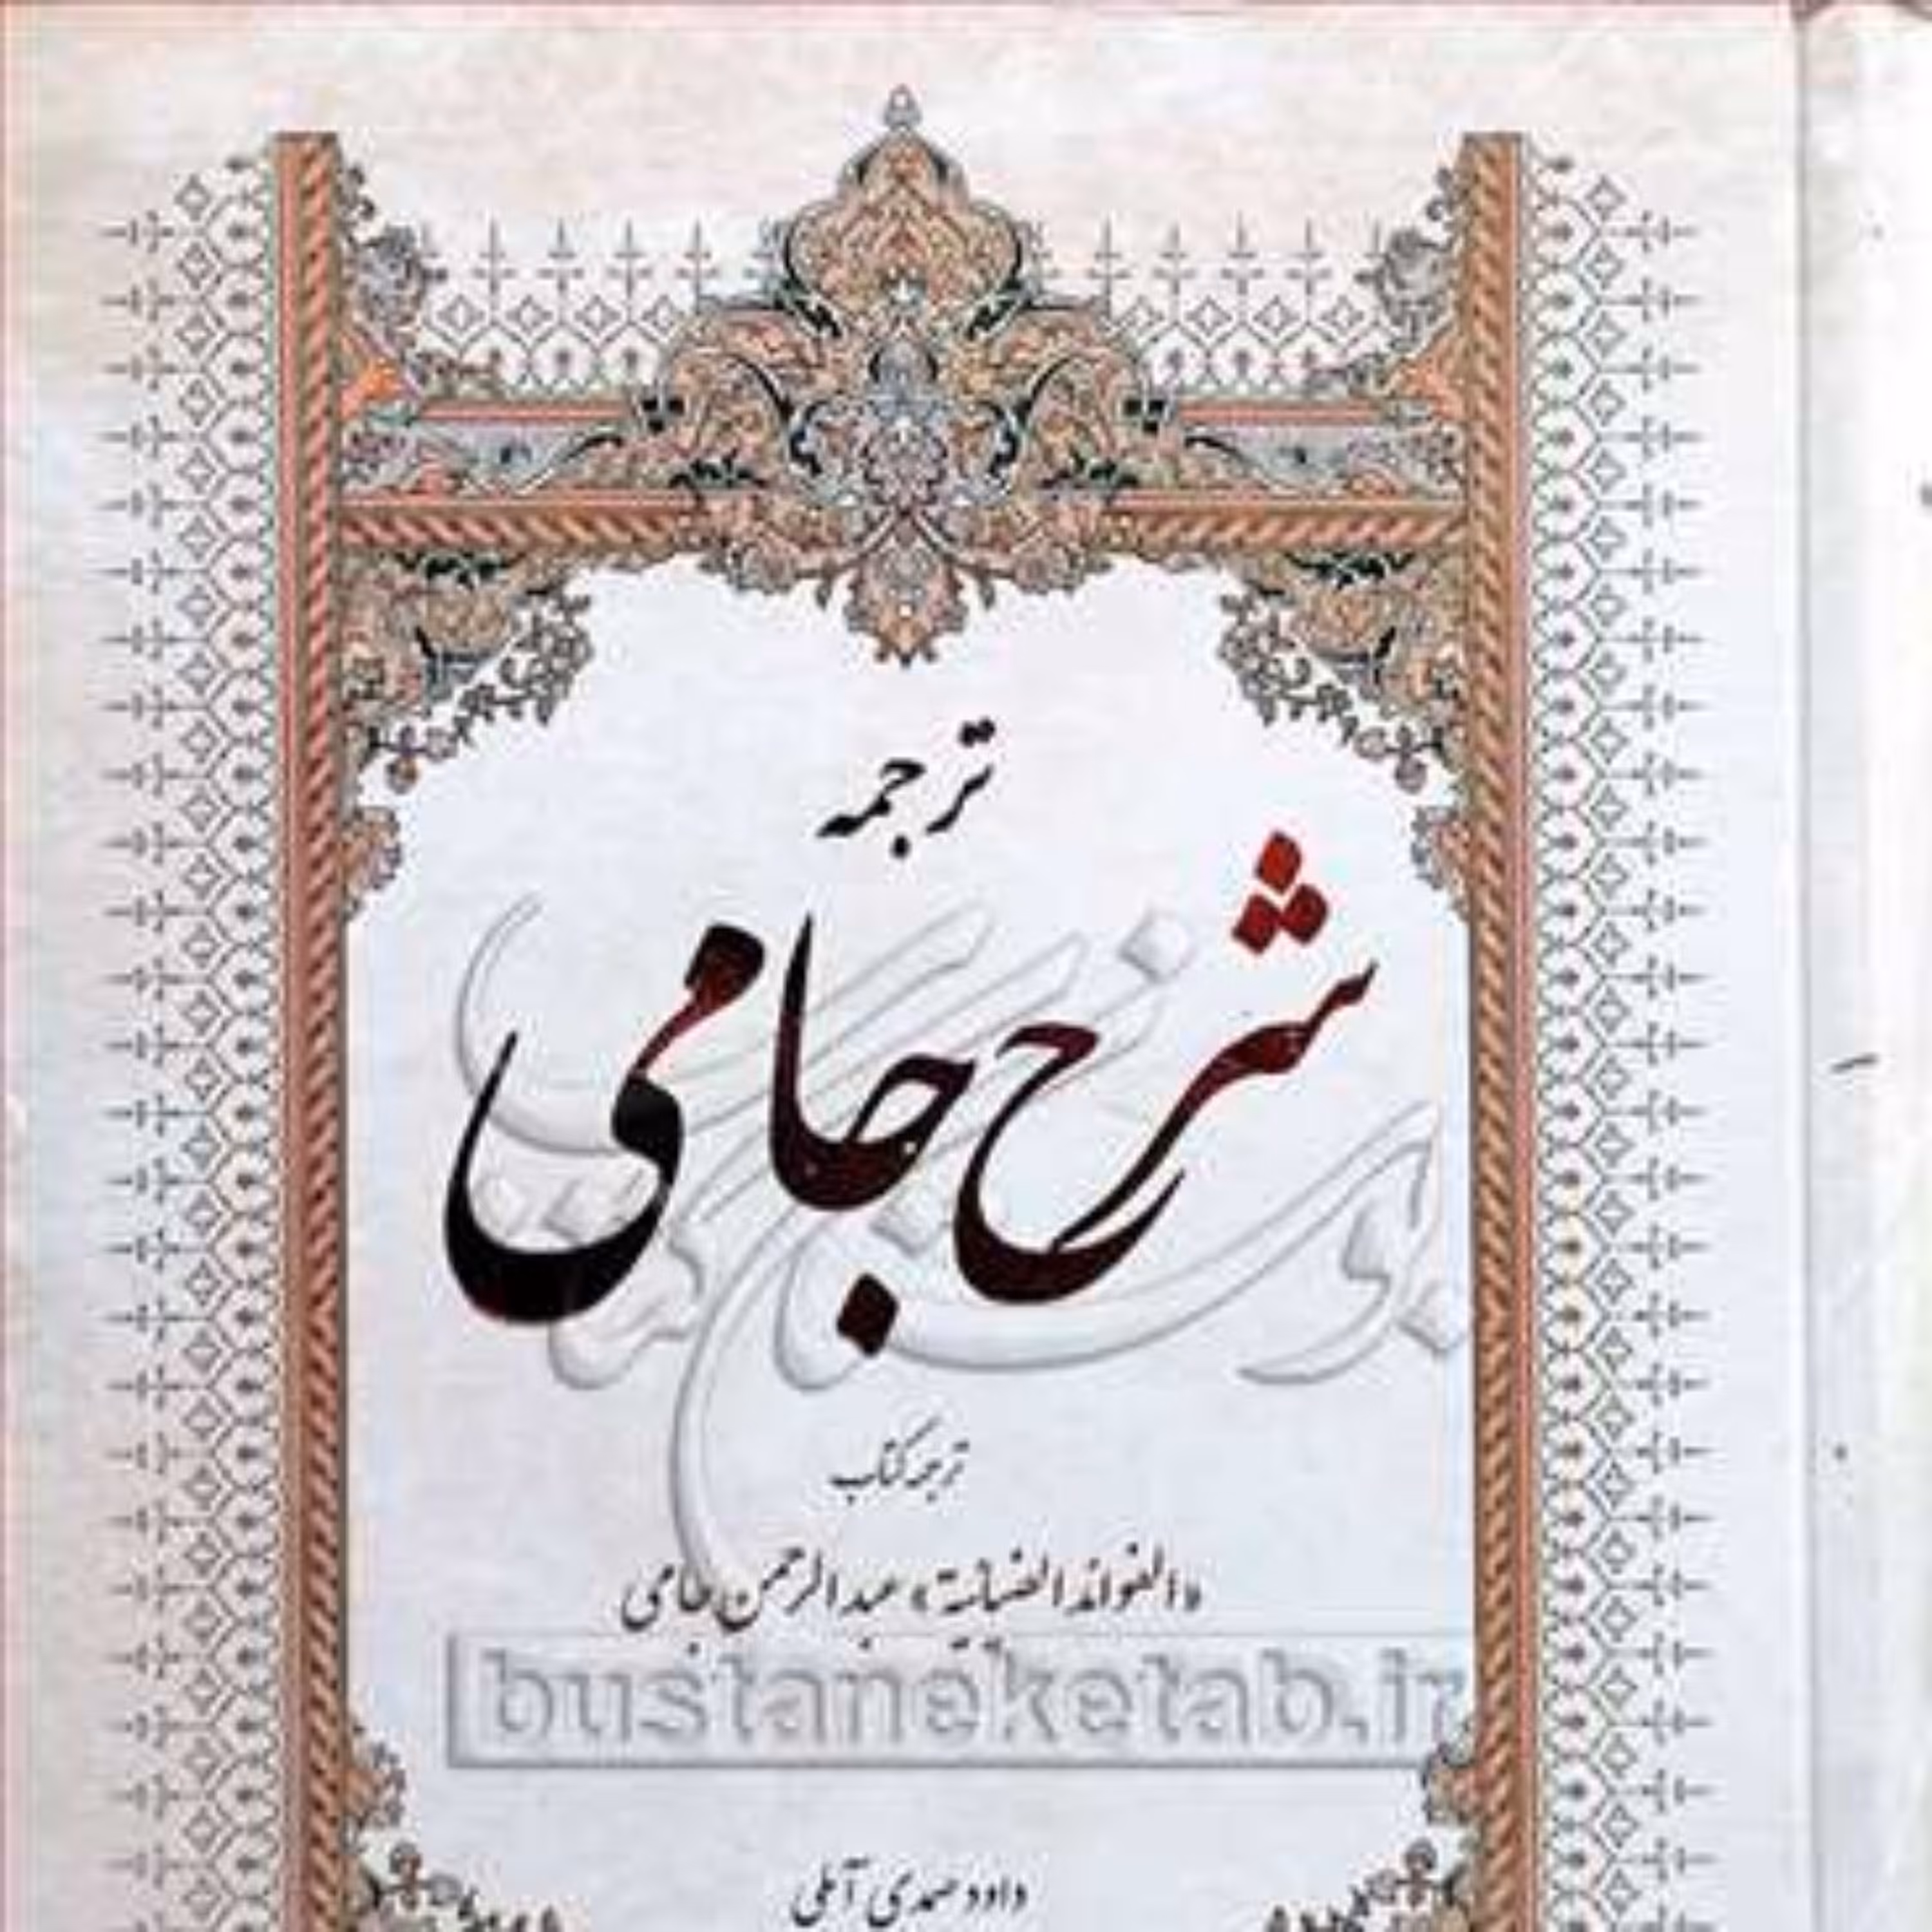 ترجمه
شرح جامی
ترجمه کتاب
«الفوائد الضیائیة» عبدالرحمن جامی
bustaneketab.ir
داود صمدی آملی